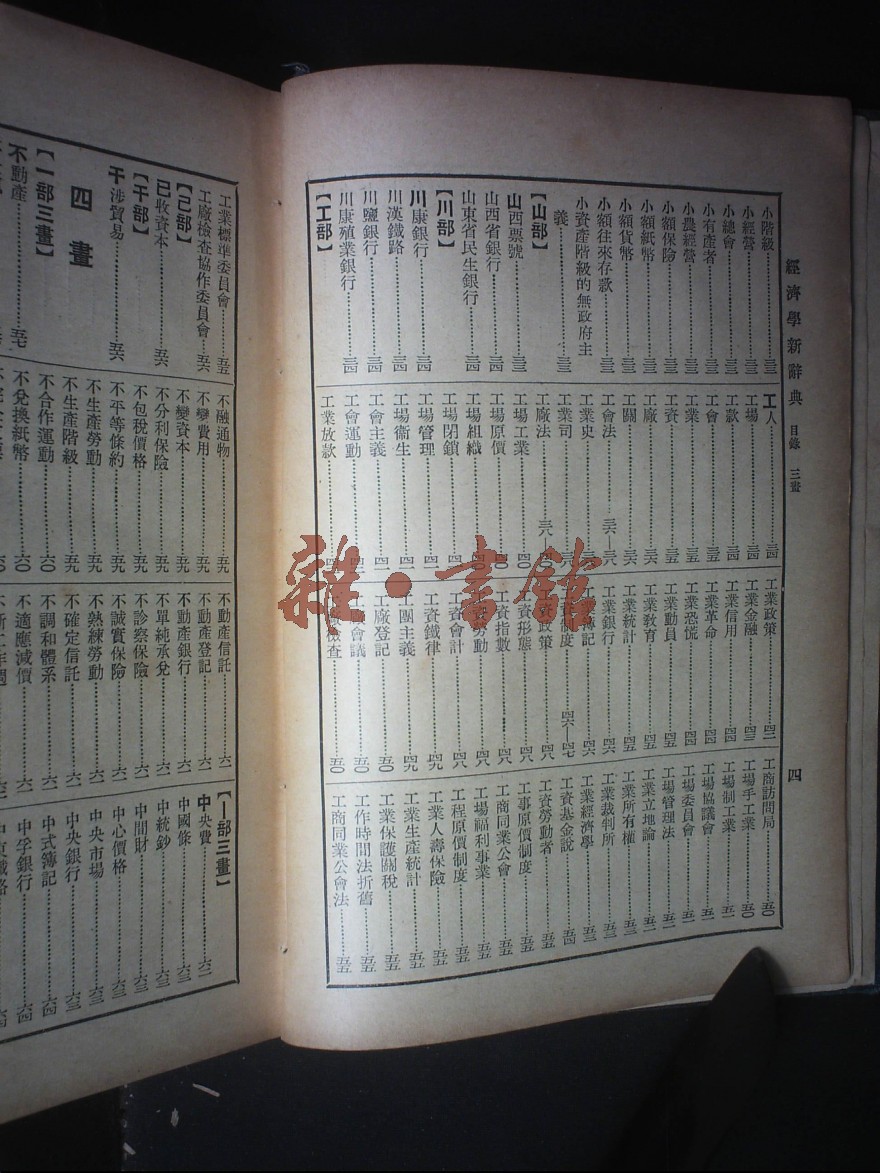 經濟學新辭典 目錄 三畫
四
小階級……三三
小經營……三三
小總會……三三
小有產者……三三
小農經營……三三
小額保險……三三
小額紙幣……三三
小額貨幣……三三
小額往來存款……三三
小資產階級的無政府主
義……三三
【山部】
山西票號……三三
山西省銀行……三四
山東省民生銀行……三四
【川部】
川康銀行……三四
川漢鐵路……三四
川鹽銀行……三四
川康殖業銀行……三四
【工部】
工人……三四
工場……三四
工款……三四
工會……三五
工業……三五
工資……三五
工廠……三五
工關……三六
工會法……三六—三八
工業史
工業司
工廠法……三八
工場工業
工場原價……四〇
工場組織
工場閉鎖
工場管理
工場衞生……四一
工會主義
工會運動
工業放款
工業政策……四二
工業金融……四三
工業信用……四四
工業革命……四四
工業恐慌……四四
工業動員……四五
工業教育……四五
工業統計……四五
工業銀行……四六
工業簿記……四六
工資制度……四六—四七
工資政策……四八
工資形態……四八
工資指數……四八
工資勞動……四八
工資會計……四八
工資鐵律……四九
工團主義……四九
工廠登記……五〇
工廠會議……五〇
檢查……五〇
工商訪問局……五〇
工場手工業……五〇
工場制工業……五一
工場協議會……五一
工場委員會……五一
工場管理法……五二
工業立地論……五二
工業所有權……五二
工業裁判所……五三
工業經濟學……五三
工資基金說……五四
工資勞動者……五五
工事原價制度……五五
工商同業公會……五五
工場福利事業……五五
工程原價制度……五五
工業人壽保險……五五
工業生產統計……五五
工業保護關稅……五五
工作時間法折舊……五五
工商同業公會法……五五
工業標準委員會……五五
工廠檢查協作委員會……五六
【己部】
已收資本……五六
【干部】
干涉貿易……五六
四畫
【一部三畫】
不動產……五七
不融通物……五九
不變費用……五九
不變資本……五九
不分利保險……五九
不包稅價格……五九
不平等條約……五九
不生產勞動……五九
不生產階級……五九
不合作運動……六〇
不兌換紙幣……六〇
不動產信託……六一
不動產登記……六一
不動產銀行……六一
不單純承兌……六一
不診察保險……六一
不誠實保險……六一
不熟練勞動……六一
不確定信託……六一
不調和體系……六一
不適應減價……六二
【丨部三畫】
中央費……六二
中國條……六三
中統鈔……六三
中間財……六三
中心價格……六三
中央市場……六三
中央銀行……六三
中式簿記……六四
中孚銀行……六四
中東鐵路……六四
雜·書館